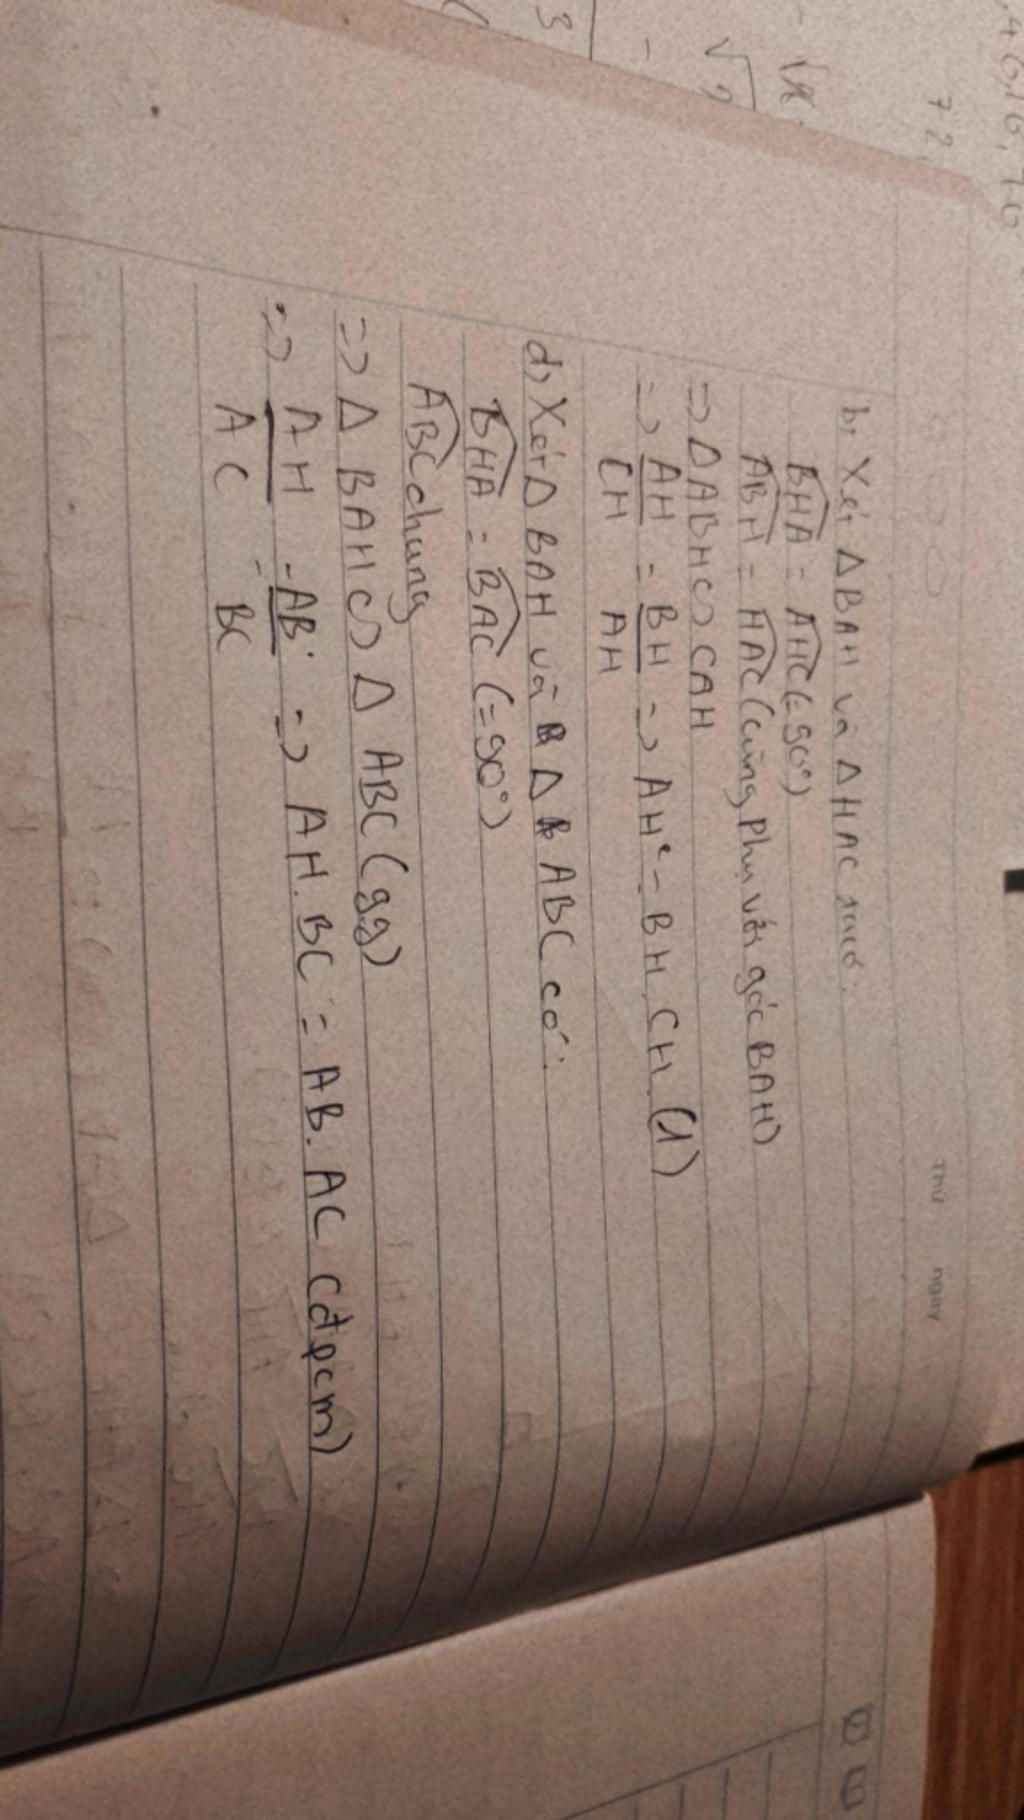 Thứ ngày
b, Xét Δ BAH và Δ HAC ta có:
BHA = AHC (= 90°)
ABH = HAC (cùng phụ với góc BAH)
=> Δ ABH ∽ CAH
=> AH/CH = BH/AH => AH² = BH.CH (1)
d, Xét Δ BAH và Δ ABC có:
BHA = BAC (= 90°)
ABC chung
=> Δ BAH ∽ Δ ABC (gg)
=> AH/AC = AB/BC => AH.BC = AB.AC (đpcm)